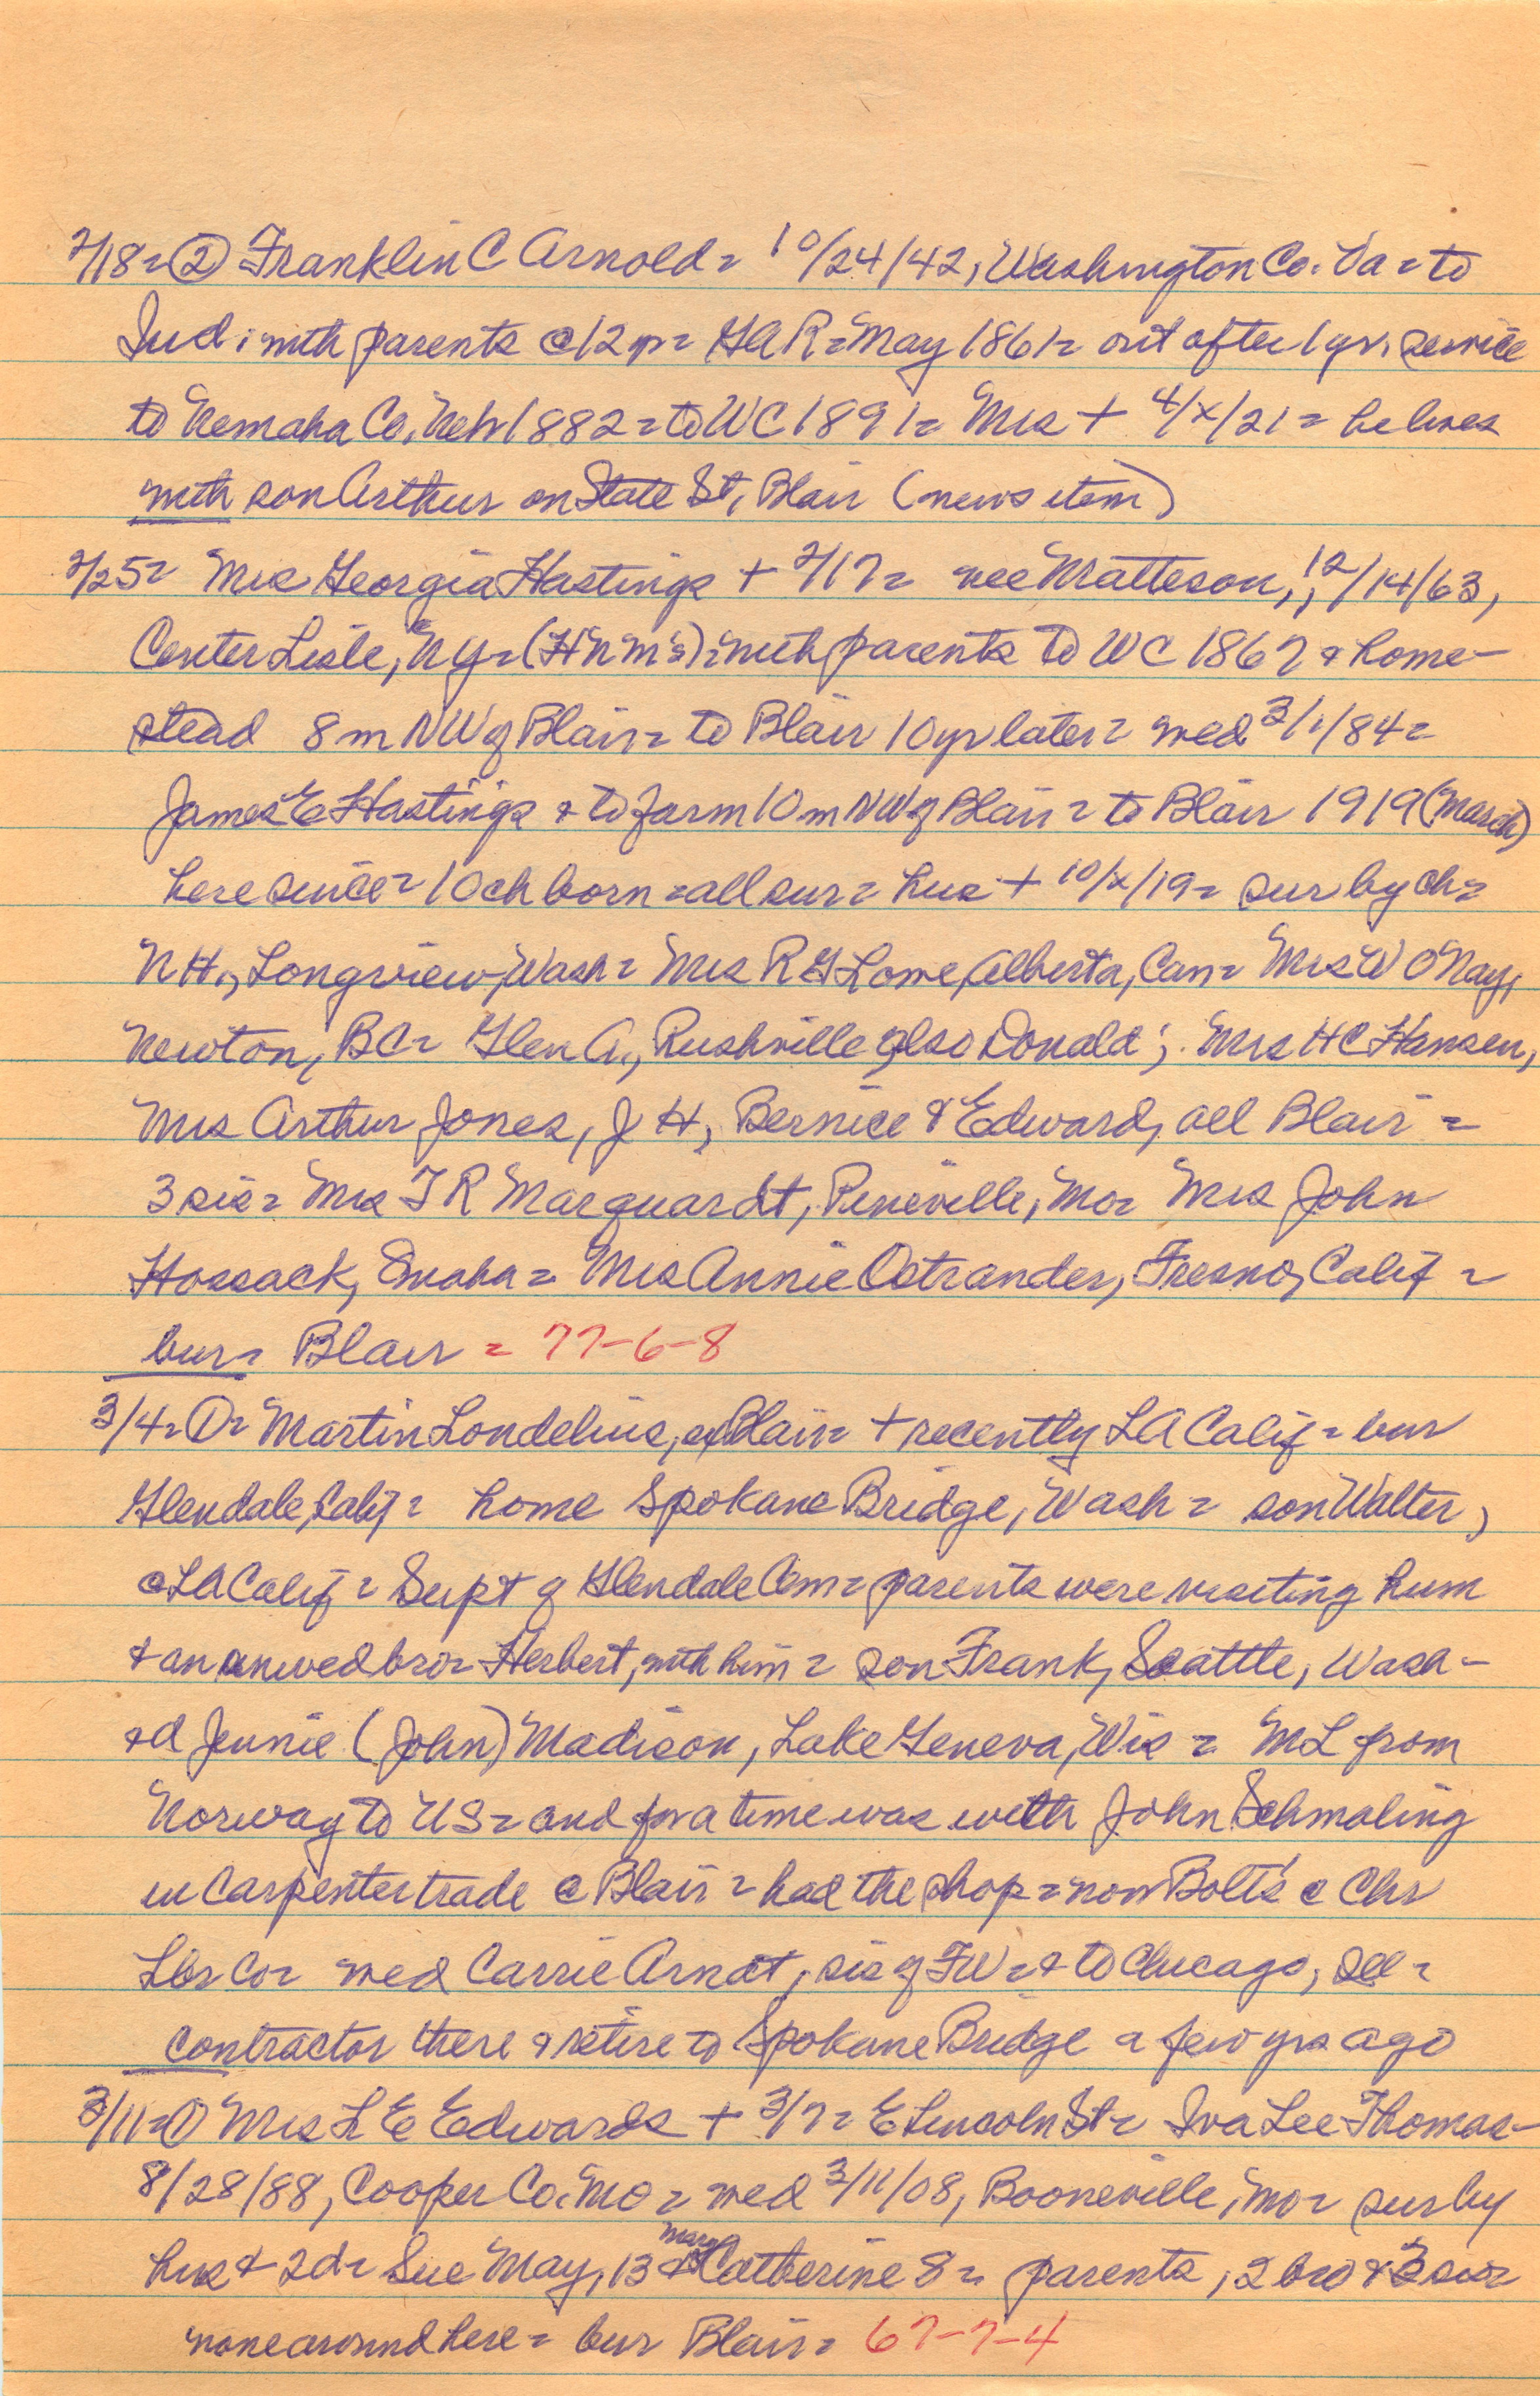 2/18= ② Franklin C Arnold= 10/24/42, Washington Co. Va= to
Ind. with parents @ 12 yr= GAR= May 1861= out after 1 yr. service
to Nemaha Co, Nebr 1882= to WC 1891= Mrs + 4/x/21= he lives
with son Arthur on State St, Blair (news item)
2/25= Mrs Georgia Hastings + 2/17= nee Matteson, 12/14/63,
Center Lisle, NY= (H N M's)= with parents to WC 1867 & home-
stead 8 m NW of Blair= to Blair 10 yr later= wed 3/1/84=
James E Hastings & to farm 10 m NW of Blair= to Blair 1919 (March)
here since= 10 ch born= all sur= hus + 10/x/19= sur by ch=
N H., Longview, Wash= Mrs R G Lowe, Alberta, Can= Mrs W O Nay,
Newton, BC= Glen A., Rushville also Donald; Mrs H C Hansen,
Mrs Arthur Jones, J H, Bernice & Edward, all Blair=
3 sis= Mrs T R Marquardt, Pineville, Mo= Mrs John
Hossack, Omaha= Mrs Annie Ostrander, Fresno, Calif=
bur= Blair= 77-6-8
3/4= ①= Martin Londelius, ex Blair= + recently LA Calif= bur
Glendale, Calif= home Spokane Bridge, Wash= son Walter,
@ LA Calif= Supt of Glendale Cem= parents were visiting him
& an unwed bro= Herbert, with him= son Frank, Seattle, Wash-
& d Jennie (John) Madison, Lake Geneva, Wis= ML from
Norway to US= and for a time was with John Schmaling
in Carpenter trade @ Blair= had the shop= now Bolt's @ Chr
Lbr Co= wed Carrie Arndt, sis of FW= & to Chicago, Ill=
contractor there & retire to Spokane Bridge a few yrs ago
3/11= ① Mrs L E Edwards + 3/7= E Lincoln St= Iva Lee Thomas-
8/28/88, Cooper Co. Mo= wed 3/11/08, Booneville, Mo= sur by
hus & 2 d= Sue May, 13 & Mary Catherine 8= parents, 2 bro & 3 sis=
none around here= bur Blair= 67-7-4